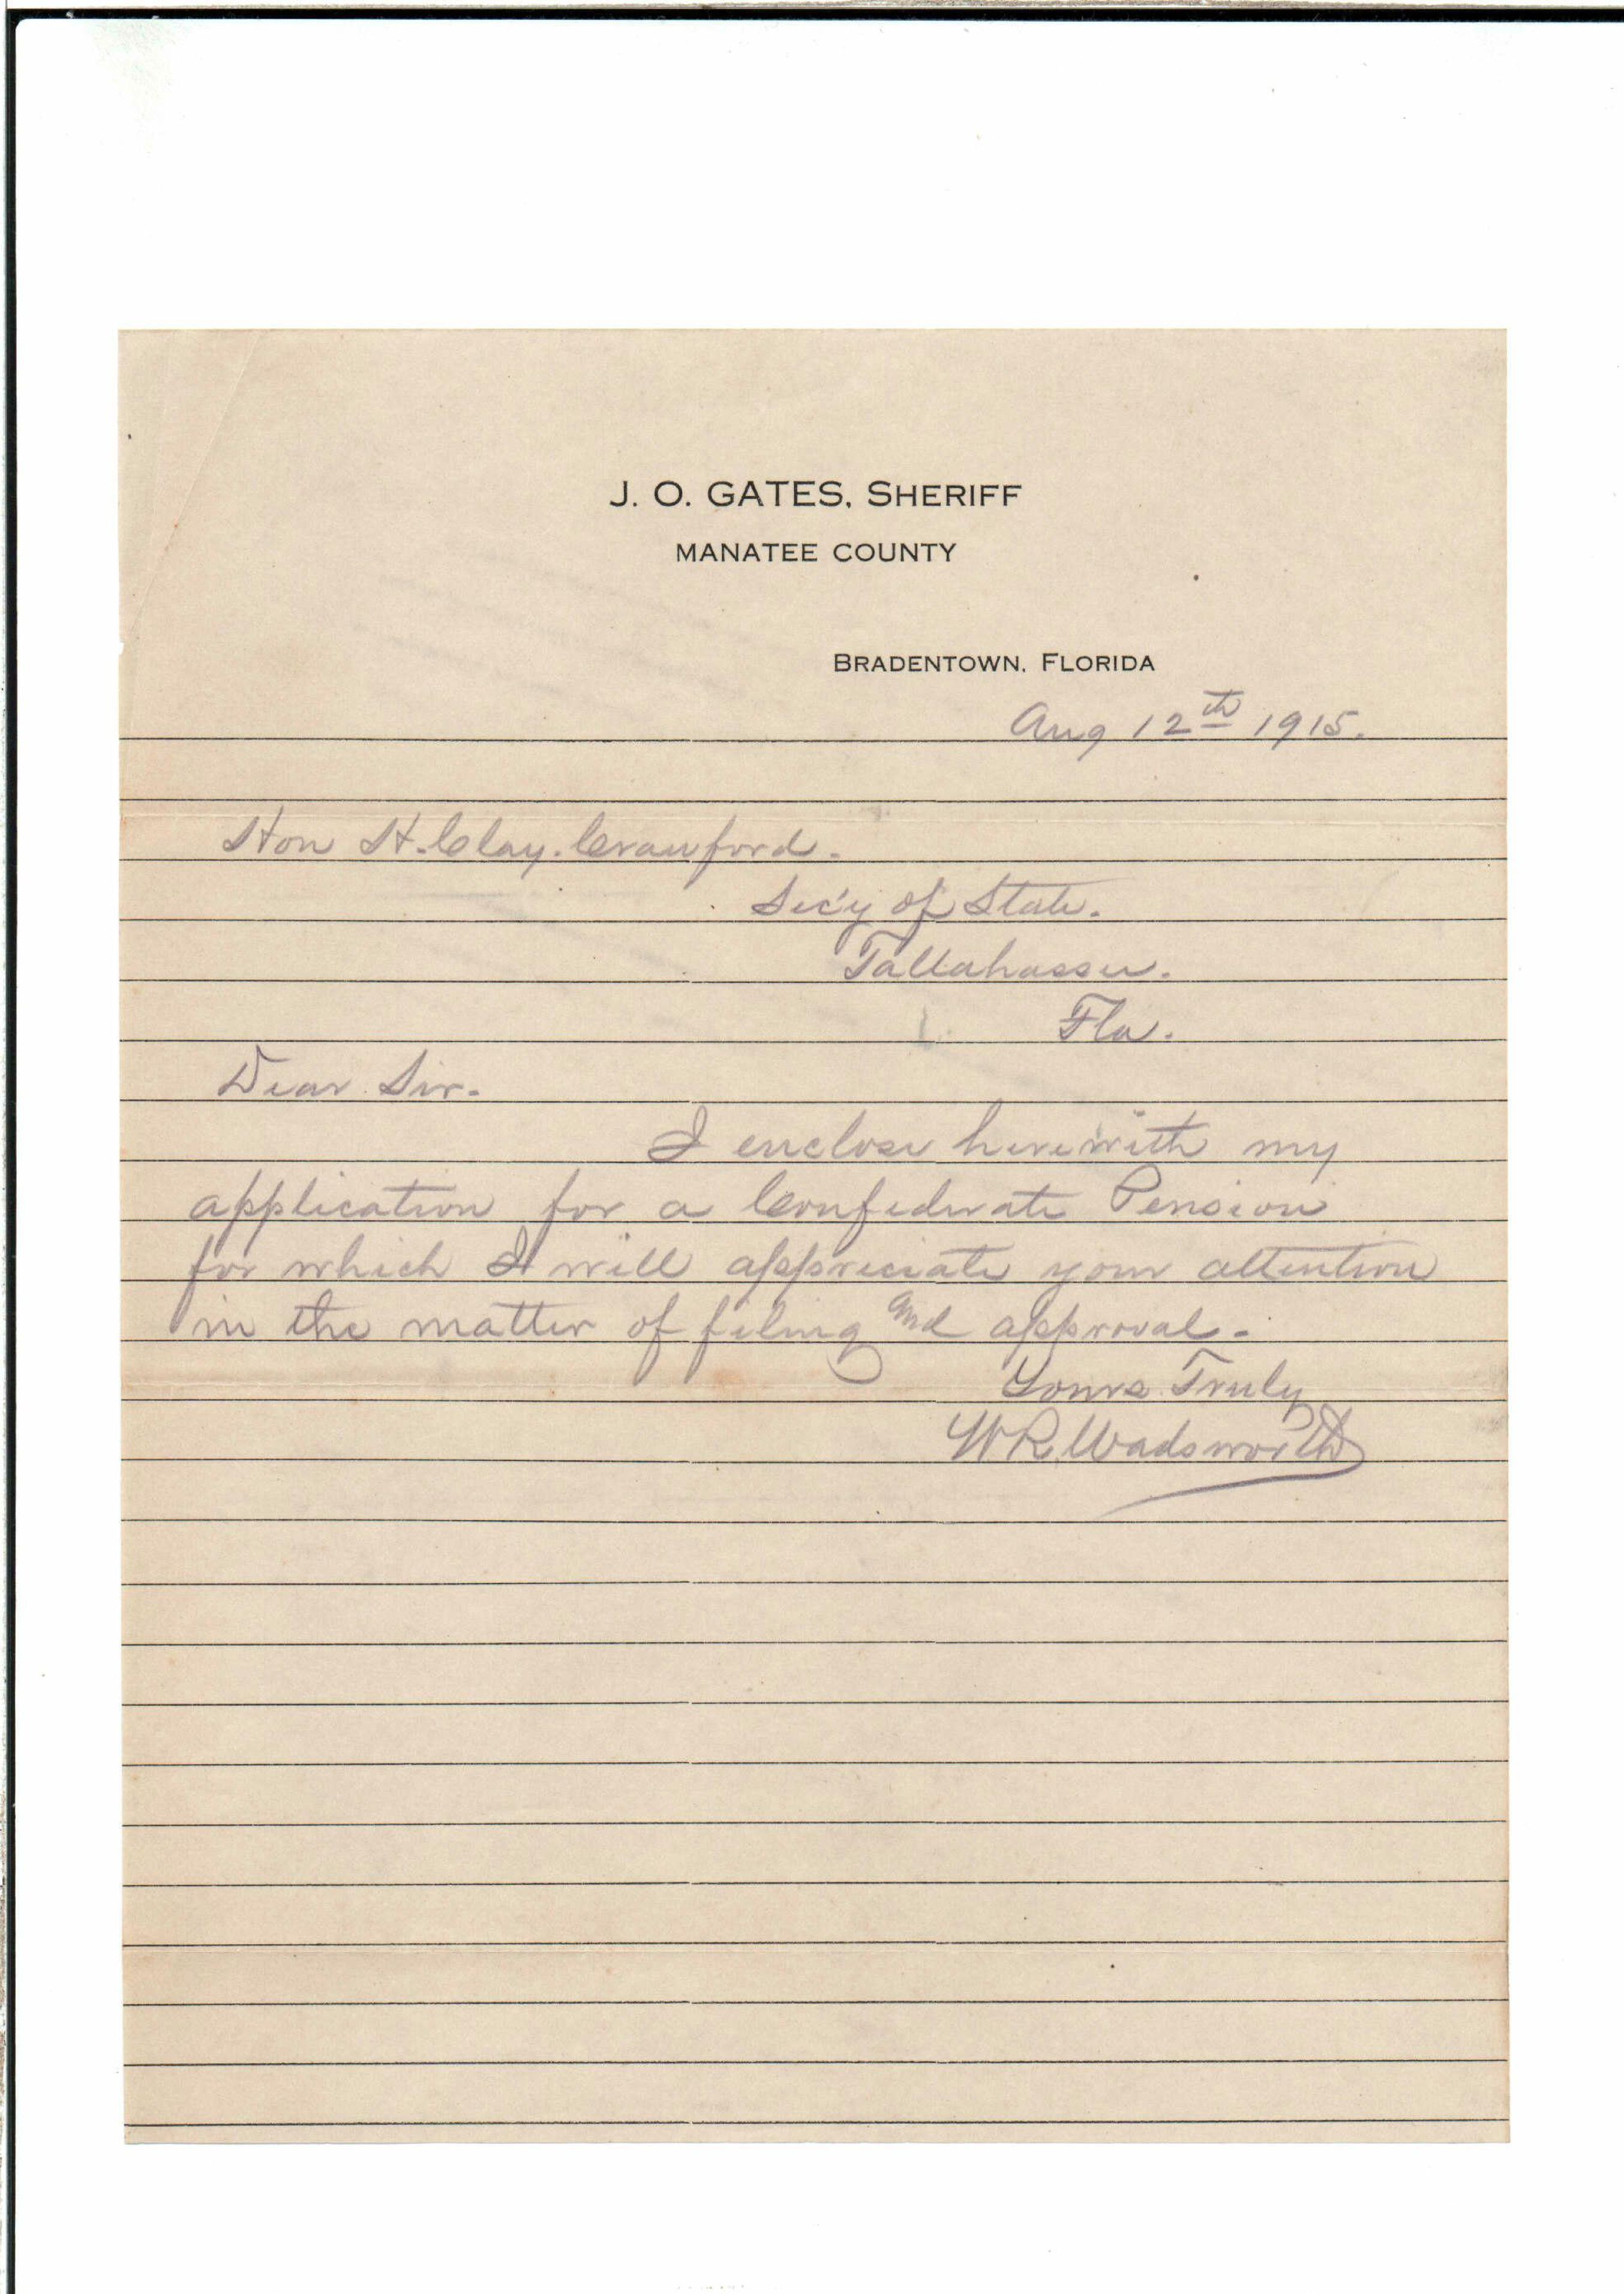 J. O. GATES, SHERIFF
MANATEE COUNTY
BRADENTOWN, FLORIDA
Aug 12th 1915.
Hon H. Clay. Crawford.
Sec'y of State.
Tallahassee.
Fla.
Dear Sir.
I enclose herewith my
application for a Confederate Pension
for which I will appreciate your attention
in the matter of filing and approval.
Yours Truly
W R. Wadsworth